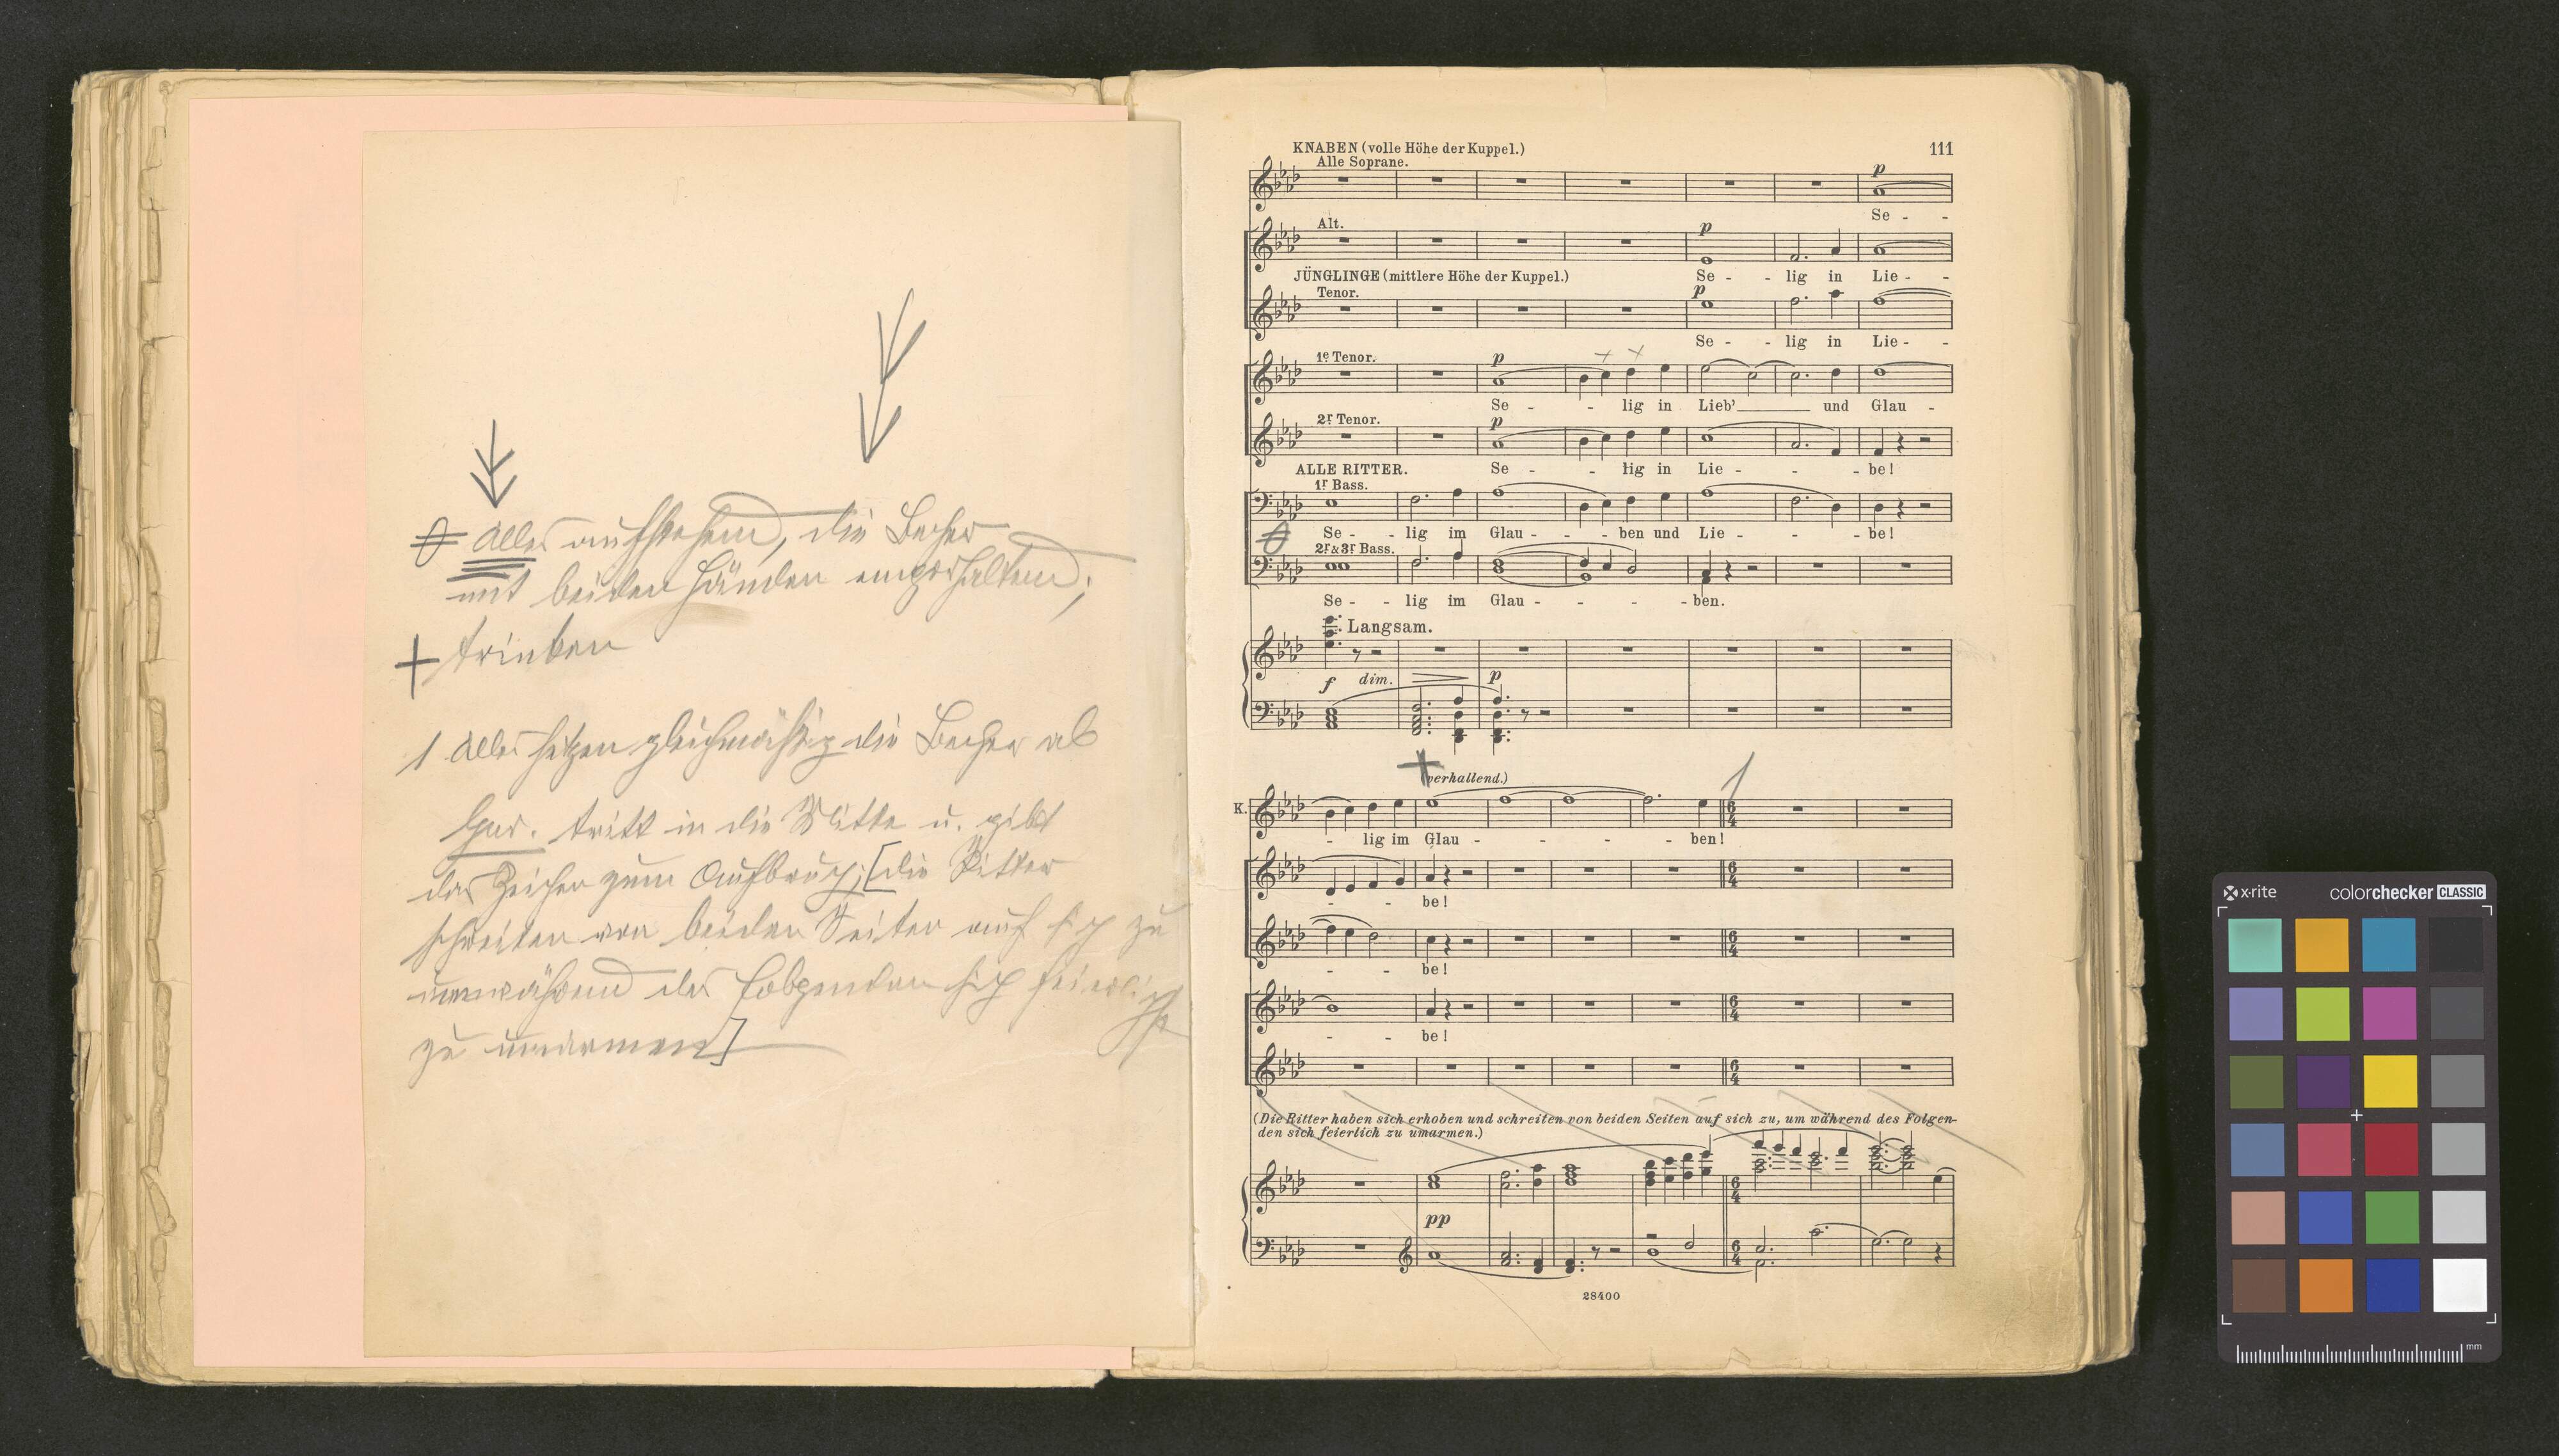 Alles aufstehend, die Becher
mit beiden Händen emporhaltend;
+ trinken
1 Alles setzen gleichmäßig die Becher ab
Gur. tritt in die Mitte u. gibt
das Zeichen zum Aufbruch; [die Ritter
schreiten von beiden Seiten auf sich zu
um während des Folgenden sich feierlich
zu umarmen]
KNABEN (volle Höhe der Kuppel.)
111
Alle Soprane.
p
Se - -
Alt.
p
JÜNGLINGE (mittlere Höhe der Kuppel.)
Se - - lig in Lie - -
Tenor.
p
Se - - lig in Lie - -
1r Tenor.
p
Se - - lig in Lieb' und Glau -
2r Tenor.
p
ALLE RITTER.
Se - - lig in Lie - - - be!
1r Bass.
Se - - lig im Glau - - - ben und Lie - - - be!
2r & 3r Bass.
Se - - lig im Glau - - - - ben.
Langsam.
f dim. p
+ (verhallend.) 1
K.
- lig im Glau - - - - ben!
- - be!
- - be!
- - be!
(Die Ritter haben sich erhoben und schreiten von beiden Seiten auf sich zu, um während des Folgen-
den sich feierlich zu umarmen.)
pp
28400
x-rite colorchecker CLASSIC
mm